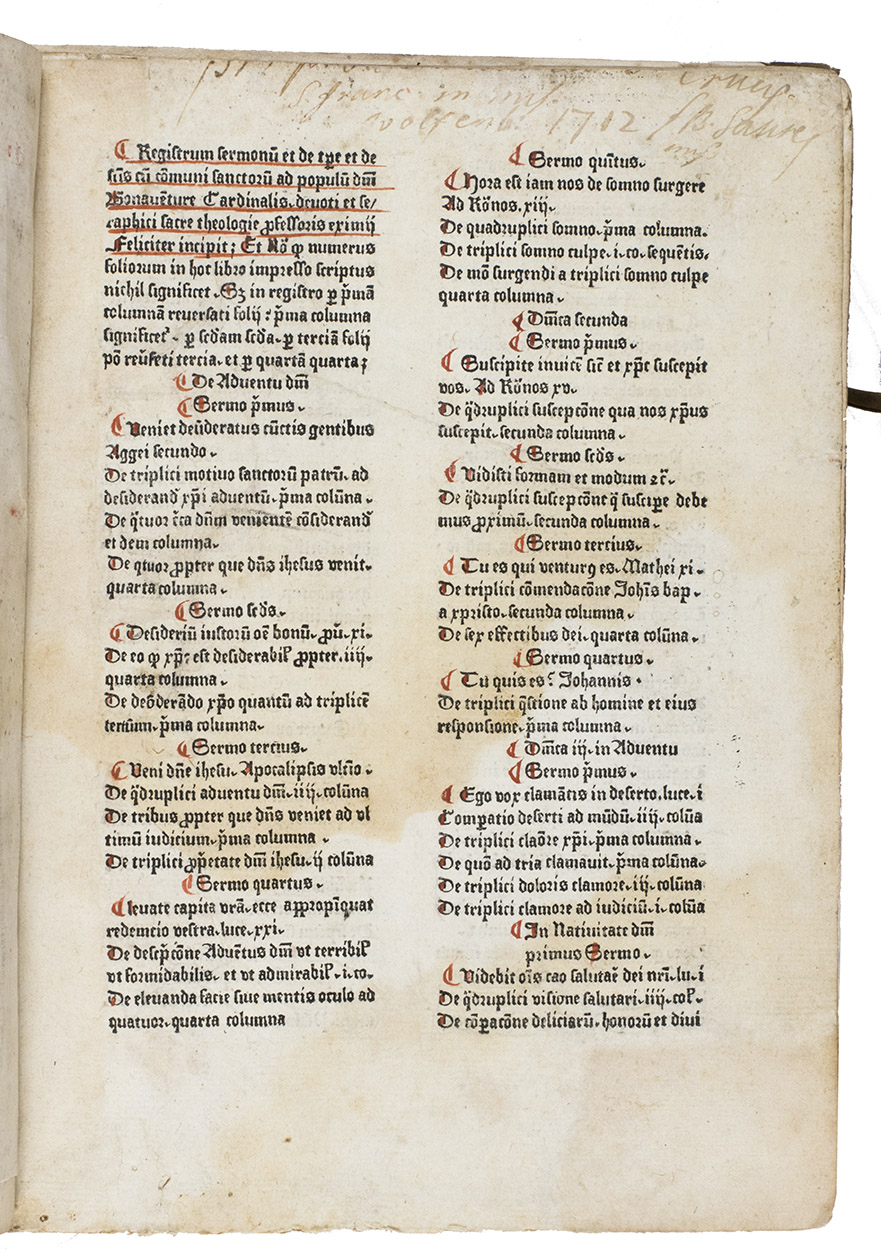 S franc in
1712
Registrum sermonū et de tp̄e et de
sūis cū cōmuni sanctorū ad populū dm̄
Bonauēture Cardinalis. deuoti et se/
raphici sacre theologie ꝓfessoris eximij
Feliciter incipit; Et Nō ꝙ numerus
foliorum in hoc libro impresso scriptus
nichil significet. Sꝫ in registro ꝑ p̄mā
columnā reuersati folij : p̄ma columna
significet᷑. ꝑ scd̄am scd̄a. ꝑ terciā folij
pō reūseti tercia. et ꝑ quartā quarta;
De Aduentu dm̄
Sermo p̄mus.
Veniet deūderatus cūctis gentibus
Aggei secundo.
De triplici motiuo sanctorū patrū. ad
desiderand̄ xp̄i aduentū. p̄ma colūna.
De q̄tuor c̄ca dn̄m venientē cōsiderand̄
et dem columna.
De qtuor ꝓpter que dn̄s ihesus venit.
quarta columna.
Sermo scd̄s.
Desideriū iustorū oē bonū. ꝓū. xi.
De eo ꝙ xp̄c est desiderabil̄ ꝓpter. iiij.
quarta columna.
De deōderādo xp̄o quantū ad triplicē
tercium. p̄ma columna.
Sermo tercius.
Veni dn̄e ihesu. Apocalipsis vltīo.
De q̄druplici aduentu dm̄. iiij. colūna
De tribus ꝓpter que dn̄s veniet ad vl
timū iudicium. p̄ma columna.
De triplici ꝓp̄etate dm̄ ihesu. ij colūna
Sermo quartus.
leuate capita vrā. ecce aꝓropīquat
redemcio vestra. luce. xxi.
De descp̄cōne Aduētus dm̄ vt terribil̄
vt formidabilis. et vt admirabil̄. i. co.
De eleuanda facie siue mentis oculo ad
quatuor. quarta columna
Sermo quītus.
Hora est iam nos de somno surgere
Ad Rōnos. xiij.
De quadruplici somno. p̄ma columna.
De triplici somno culpe. i. co. sequētis.
De mō surgendi a triplici somno culpe
quarta columna.
Dm̄ca secunda
Sermo p̄mus.
Suscipite inuicē sic̄ et xp̄c suscepit
vos. Ad Rōnos xv.
De q̄druplici suscepcōne qua nos xp̄us
suscepit. secunda columna.
Sermo scd̄s.
Vidisti formam et modum ⁊c̄.
De q̄druplici suscepcōne q̄ suscipe debe
mus ꝓximū. secunda columna.
Sermo tercius.
Tu es qui venturꝰ es. Mathei xi.
De triplici cōmendacōne Joh̄is bap.
a xpristo. secunda columna.
De sex effectibus dei. quarta colūna.
Sermo quartus.
Tu quis es? Johannis.
De triplici q̄stione ab homine et eius
responsione. p̄ma columna.
Dm̄ca iij. in Aduentu
Sermo p̄mus.
Ego vox clamātis in deserto. luce. i
Comꝑatio deserti ad mūdū. iiij. colūa
De triplici claōre xp̄i. p̄ma columna.
De quō ad tria clamauit. p̄ma colūna.
De triplici doloris clamore. iij. colūna
De triplici clamore ad iudiciū. i. colūa
In Natiuitate dm̄
primus Sermo.
Videbit oīs cao salutaē dei nr̄i. lu. i
De q̄druplici visione salutari. iiij. col̄.
De cōꝑacōne deliciarū. honorū et diui